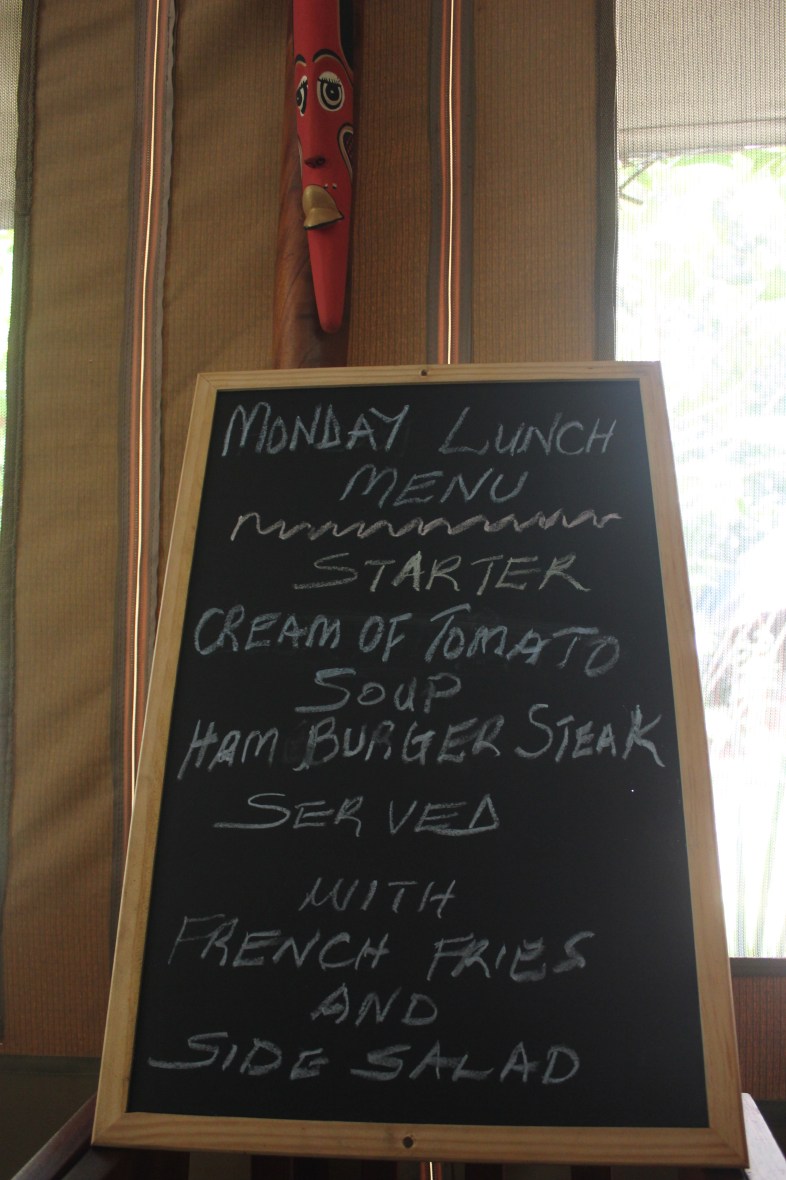 MONDAY LUNCH
MENU
STARTER
CREAM OF TOMATO
SOUP
HAM BURGER STEAK
SERVED
WITH
FRENCH FRIES
AND
SIDE SALAD